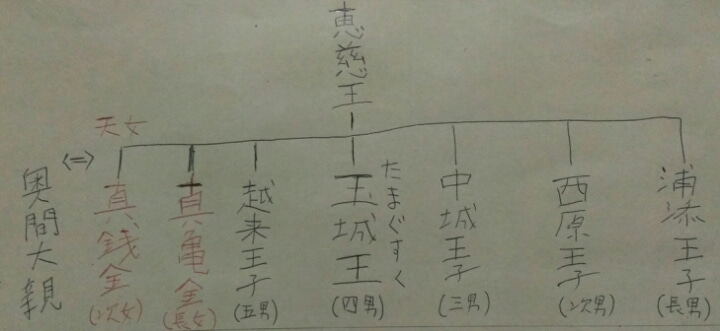 恵慈王
浦添王子
(長男)
西原王子
(次男)
中城王子
(三男)
たまぐすく
玉城王
(四男)
越来王子
(五男)
真亀金
(長女)
天女
真銭金
(次女)
<=>
奥間大親